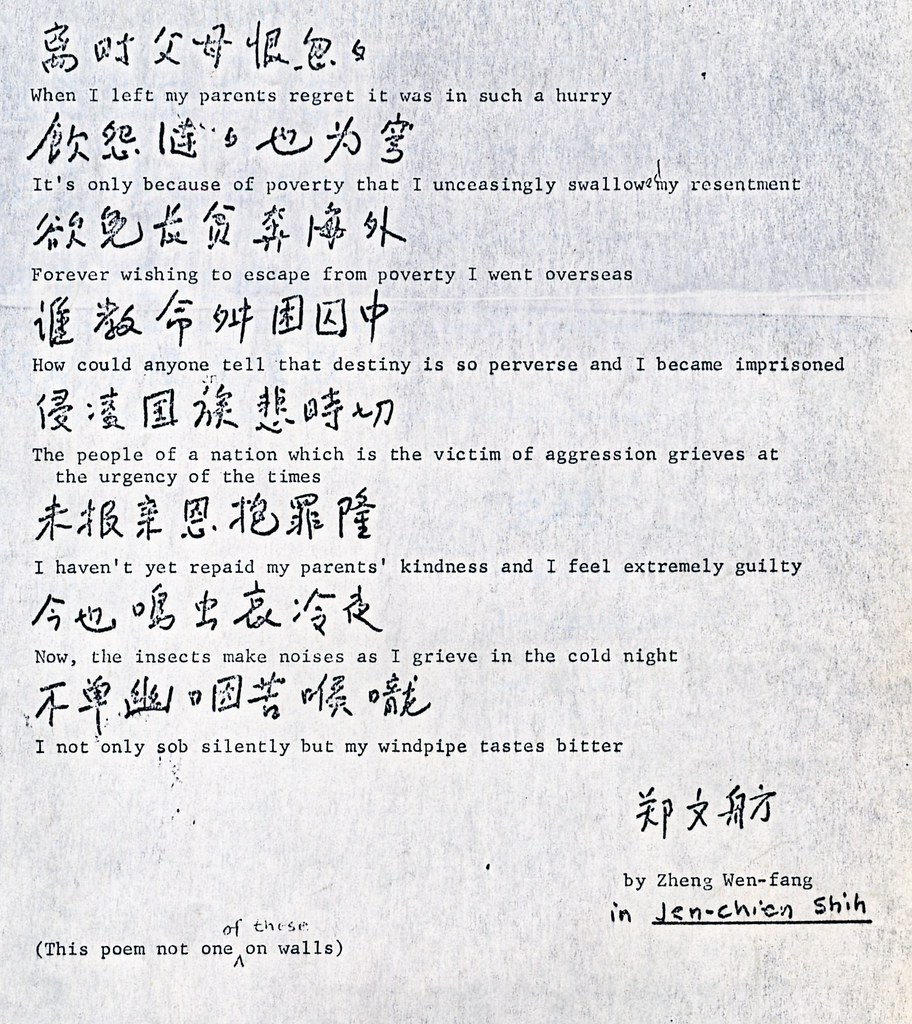 离时父母恨忽々
When I left my parents regret it was in such a hurry
飲怨涟々也为穹
It's only because of poverty that I unceasingly swallowed my resentment
欲免长贫奔海外
Forever wishing to escape from poverty I went overseas
谁教命舛困囚中
How could anyone tell that destiny is so perverse and I became imprisoned
侵凌国族悲時切
The people of a nation which is the victim of aggression grieves at
the urgency of the times
未报亲恩抱罪隆
I haven't yet repaid my parents' kindness and I feel extremely guilty
今也鳴虫哀冷夜
Now, the insects make noises as I grieve in the cold night
不单幽咽苦喉嚨
I not only sob silently but my windpipe tastes bitter
郑文舫
by Zheng Wen-fang
in Jen-chien Shih
(This poem not one of these on walls)